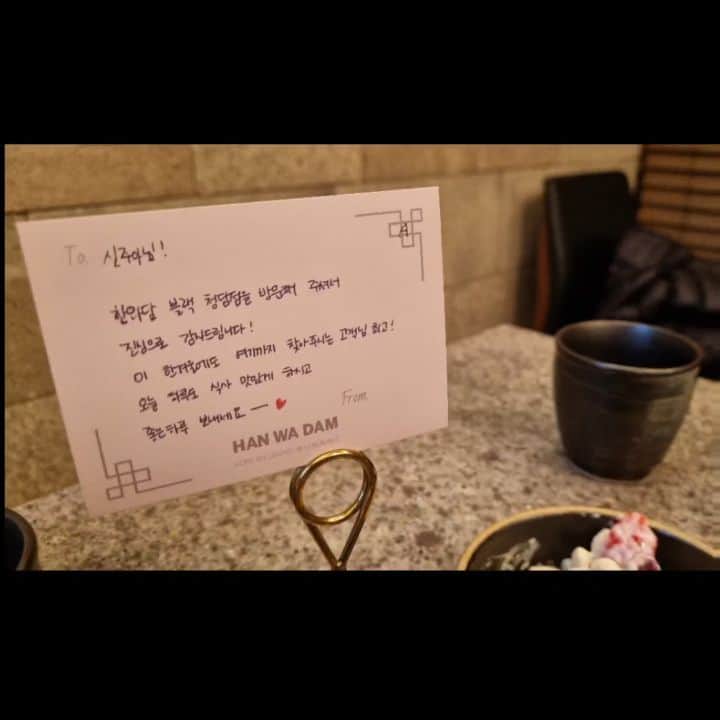 To. 신주아님!
한와담 블랙 청담점을 방문해 주셔서
진심으로 감사드립니다!
이 한겨울에도 여기까지 찾아주시는 고객님 최고!
오늘 하루도 식사 맛있게 하시고
좋은하루 보내세요ㅡ ♥
From
HAN WA DAM